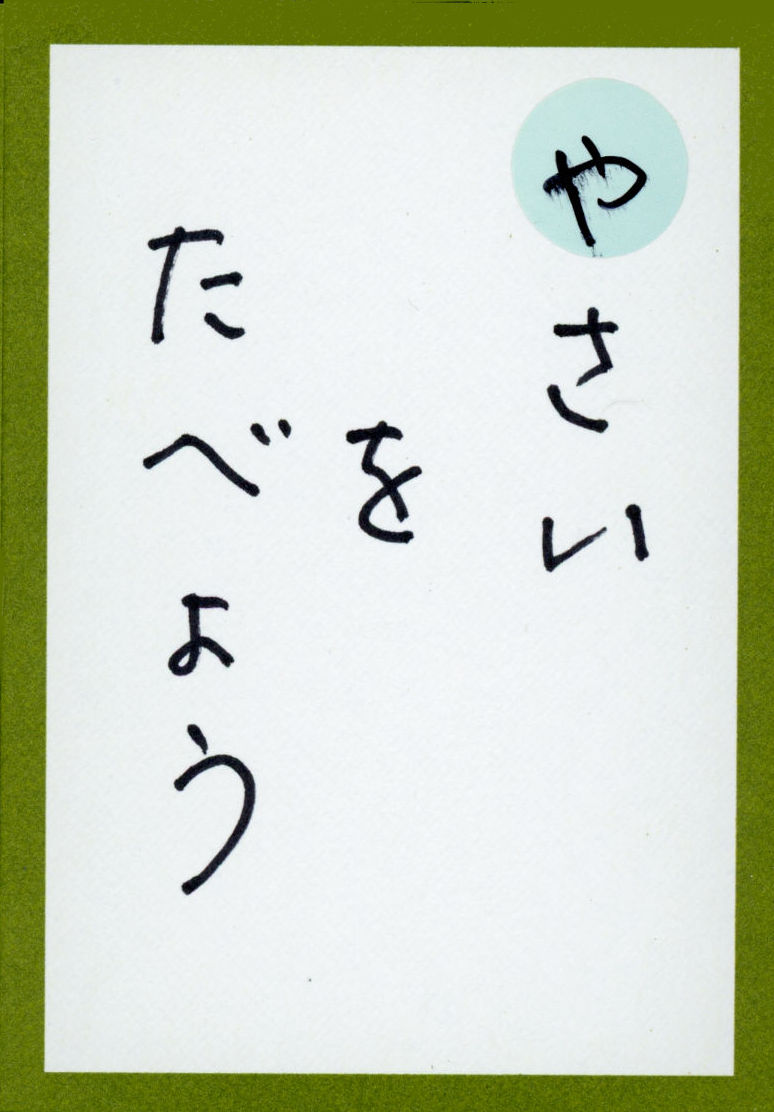 やさい
を
たべよう